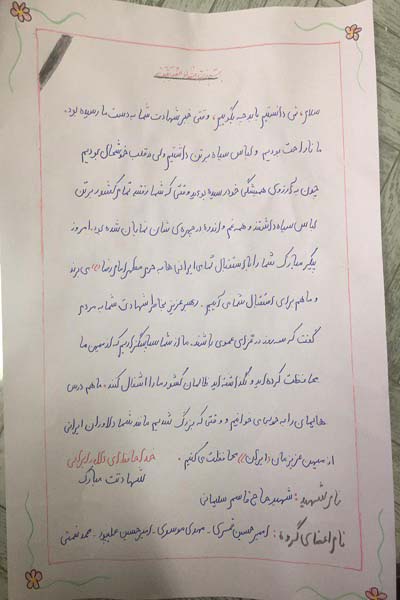 سلام، نمی دانستیم باید چه بگوییم، وقتی خبر شهادت شما به دست ما رسیده بود.
ما ناراحت بودیم و لباس سیاه بر تن داشتیم ولی در قلب خوشحال بودیم
چون به آرزوی همیشگی خود رسیده بودید وقتی که شما رفتید تمام کشور بر تن
لباس سیاه داشتند و همه غم و اندوه در چهره ی شان نمایان شده بود. امروز
پیکر مبارک شما را با استقبال تمامی ایرانی ها به حرم مطهر امام رضا (ع) می برند
و ما هم برای استقبال شما می آییم. رهبر عزیز بخاطر شهادت شما به مردم
گفت که سه روز در عزای عمومی باشند. ما از شما سپاسگزاریم که از میهن ما
محافظت کرده اید و نگذاشته اید ظالمان کشور ما را اشغال کنند، ما هم درس
هایمان را به خوبی می خوانیم و وقتی که بزرگ شدیم مانند شما دلاوران ایرانی
از میهن عزیزمان (ایران) محافظت می کنیم. خداحافظ ای دلاور ایرانی
شهادتت مبارک
نام شهید: شهید حاج قاسم سلیمانی
نام اعضای گروه: امیرحسین - مهدی موسوی - امیرحسین - محمد